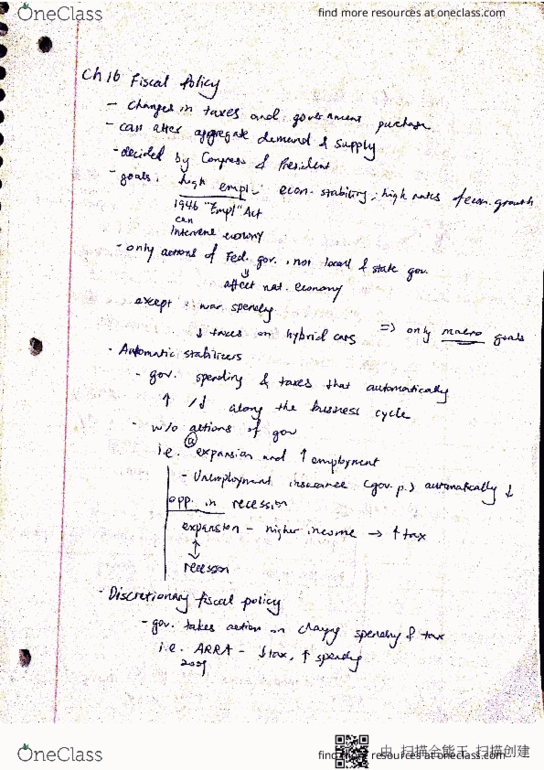 OneClass
find more resources at oneclass.com
Ch 16 Fiscal Policy
- changes in taxes and government purchase
- can alter aggregate demand & supply
- decided by Congress & President
- goals: high empl; econ. stability; high rates of econ. growth
1946 "Empl" Act
can
intervene economy
- only actions of Fed. gov. not local & state gov.
affect nat. economy
except : war spending
↓ taxes on hybrid cars => only macro goals
- Automatic stabilizers
- gov. spending & taxes that automatically
↑ /↓ along the business cycle
- w/o actions of gov
i.e. expansion and ↑ employment
- Unemployment insurance (gov. p.) automatically ↓
opp. in recession
expansion - higher income → ↑ tax
↕
recession
- Discretionary fiscal policy
- gov. takes action on changing spending & tax
i.e. ARRA - ↓tax, ↑ spending
2009
OneClass
find more resources at oneclass.com
由 扫描全能王 扫描创建